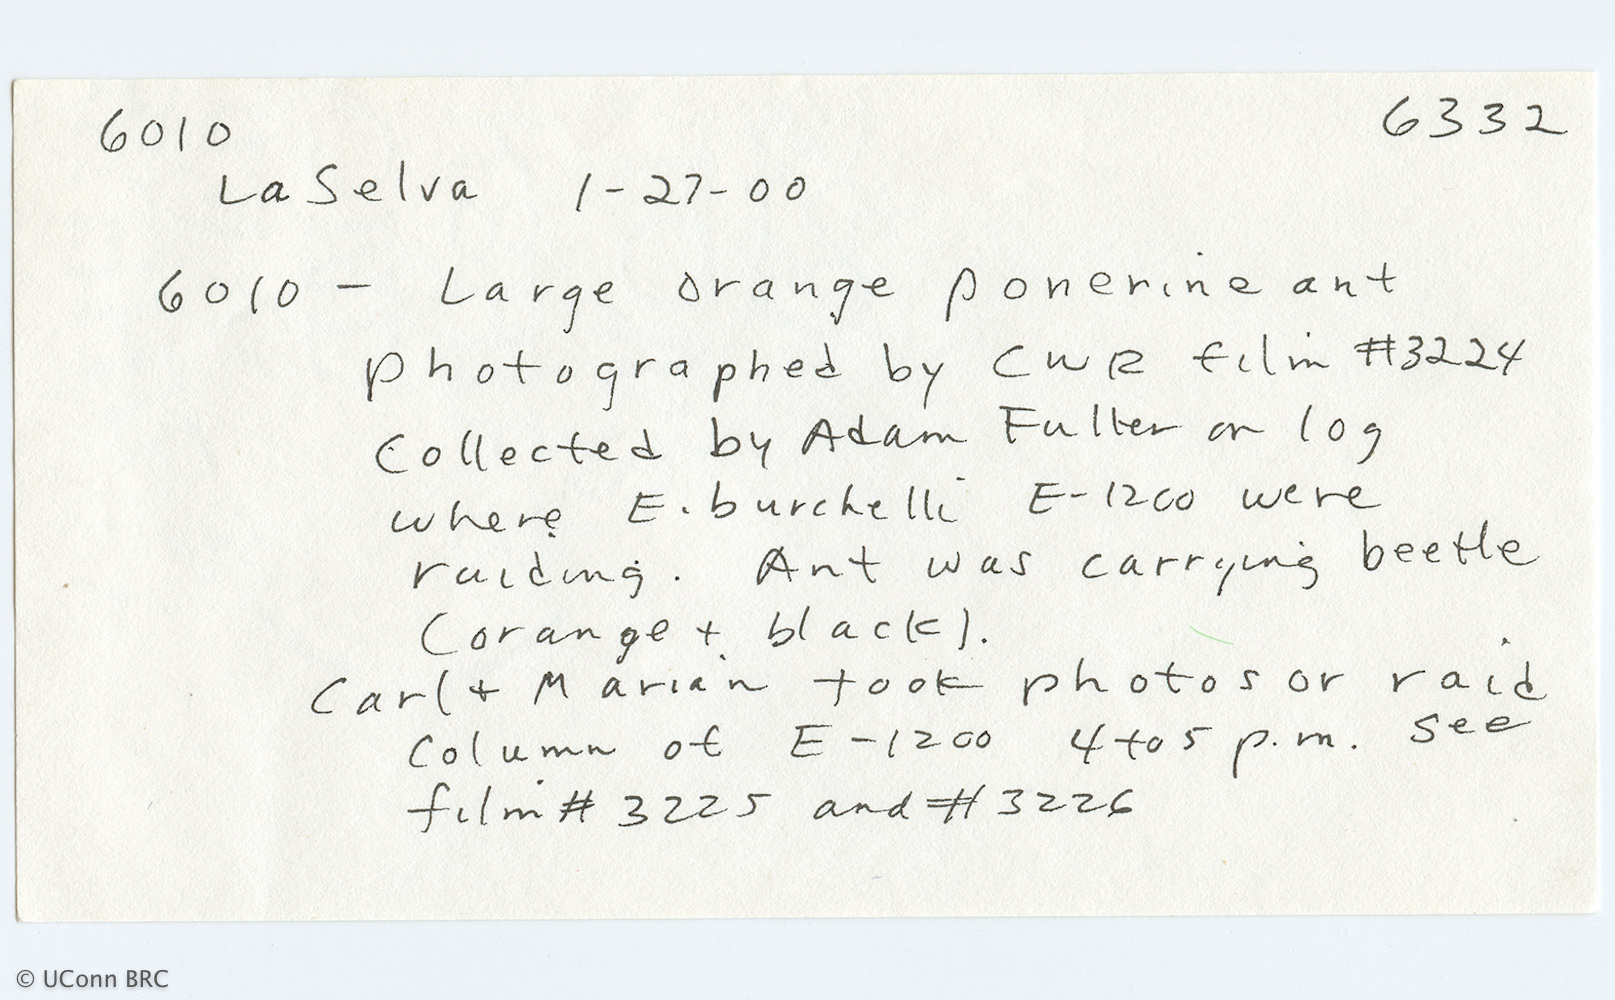 6010 6332
La Selva 1-27-00
6010 - Large orange ponerine ant
photographed by CWR film #3224
Collected by Adam Fuller on log
where E. burchelli E-1200 were
raiding. Ant was carrying beetle
(orange + black).
Carl + Marian took photos or raid
column of E-1200 4 to 5 p.m. See
film # 3225 and # 3226
© UConn BRC